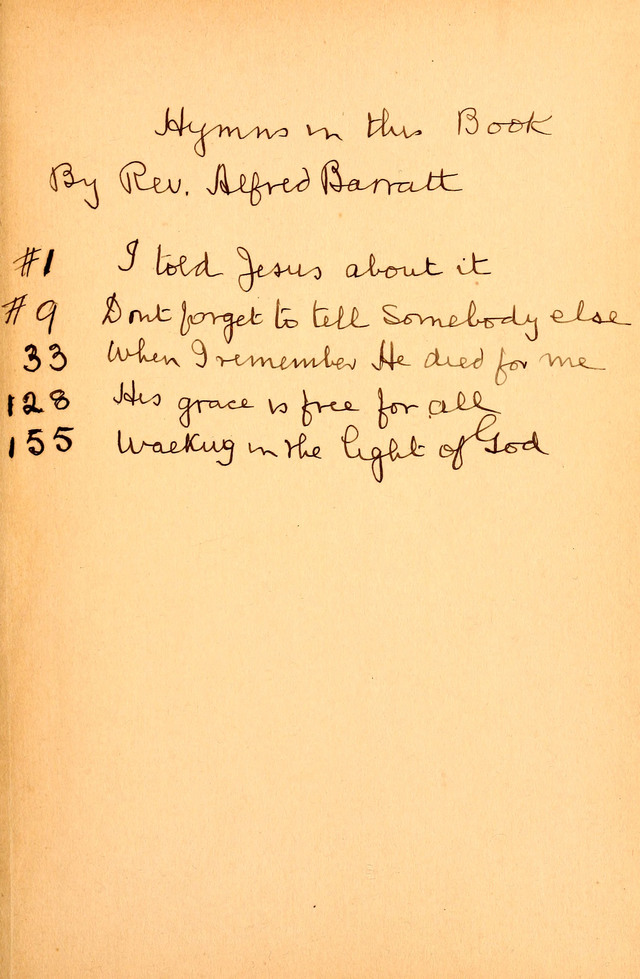 Hymns in this Book
By Rev. Alfred Barratt
#1 I told Jesus about it
#9 Dont forget to tell Somebody else
33 When I remember He died for me
128 His grace is free for all
155 Walking in the light of God